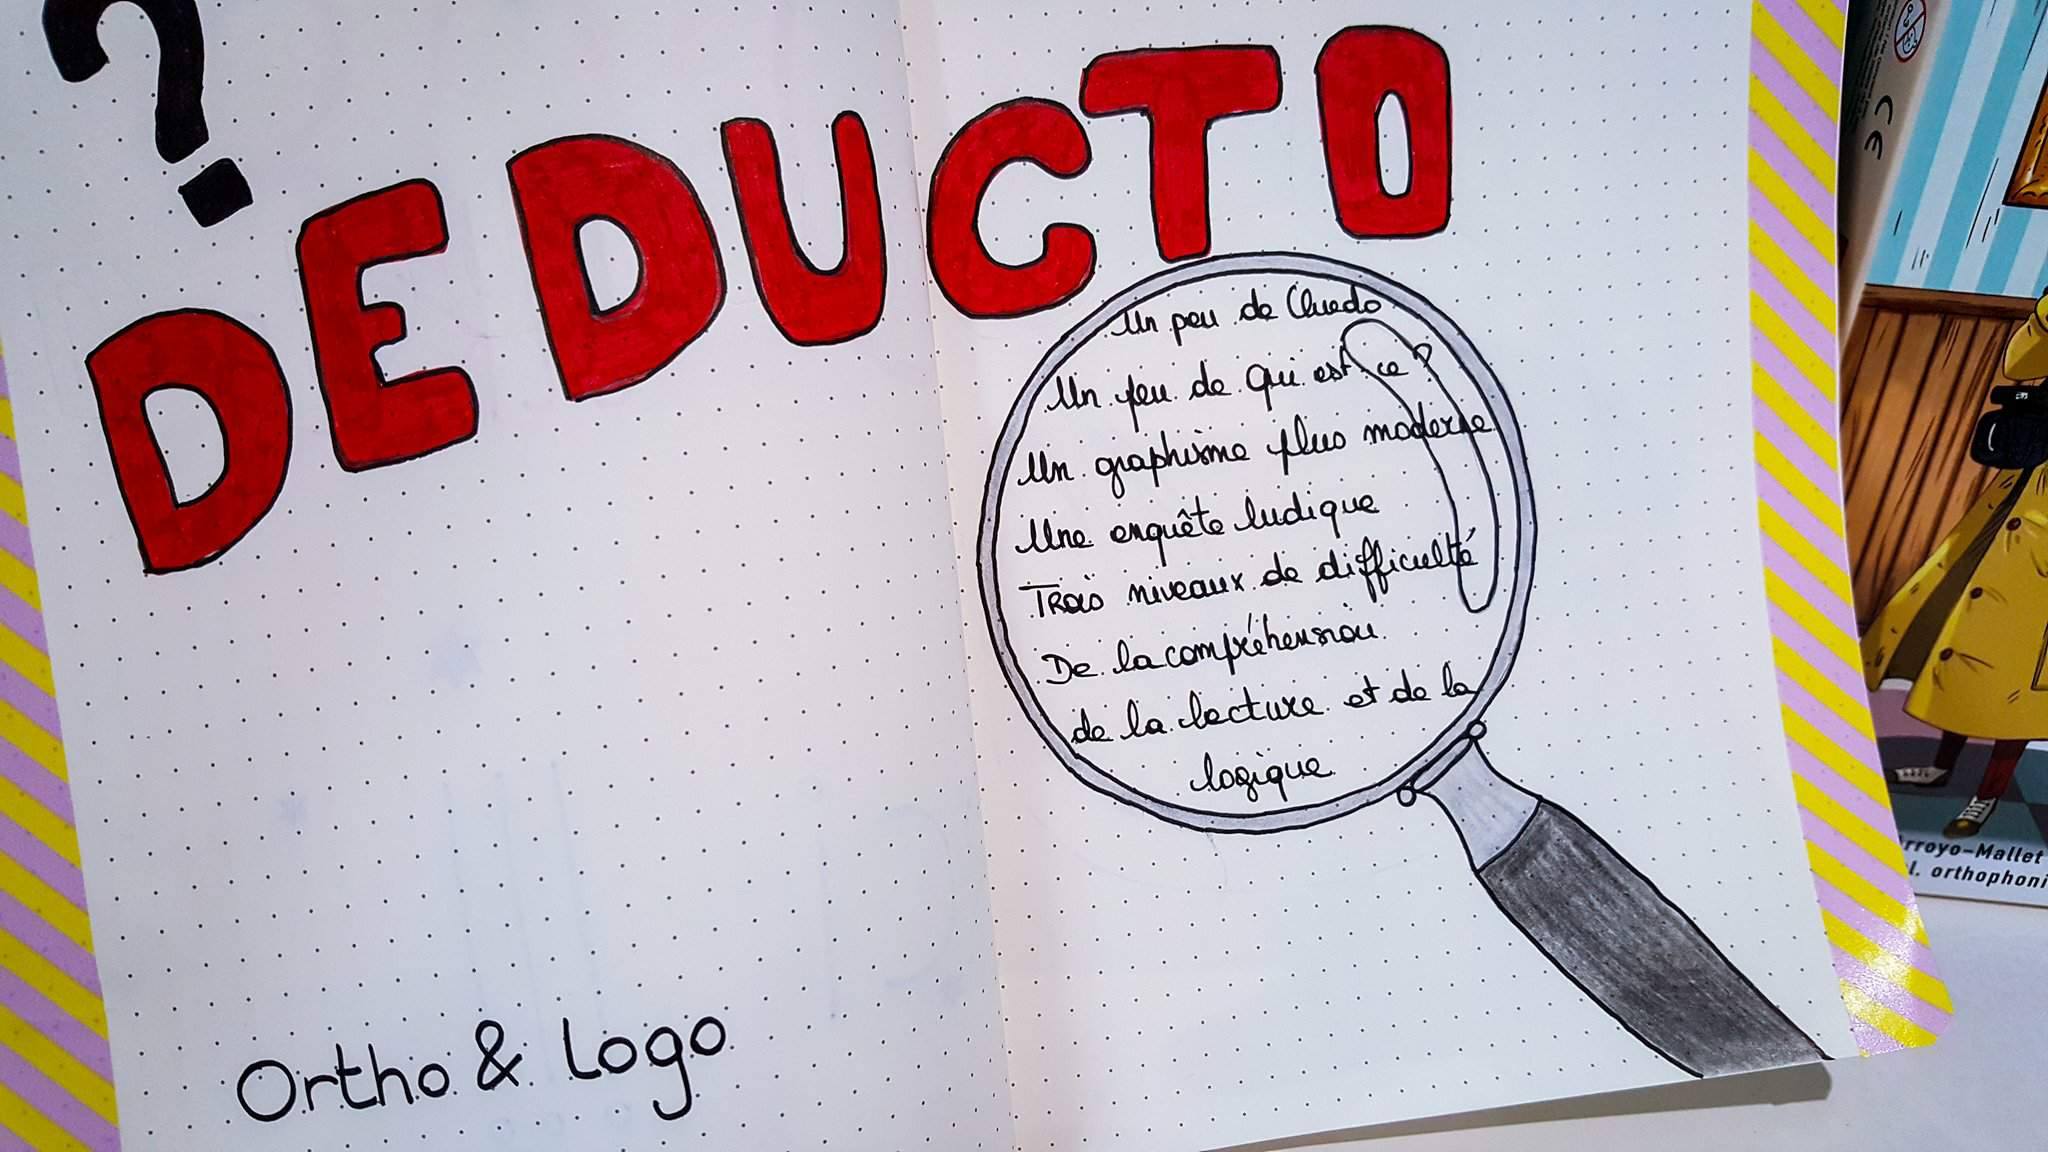 ?
DEDUCTO
Un peu de Cluedo
Un peu de Qui est ce ?
Un graphisme plus moderne
Une enquête ludique
Trois niveaux de difficulté
De la compréhension
de la lecture et de la
logique
Ortho & Logo
CE
rroyo-Mallet
l, orthophoni